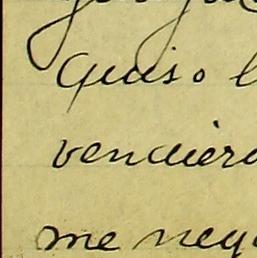 quiso l
vendiera
me nega